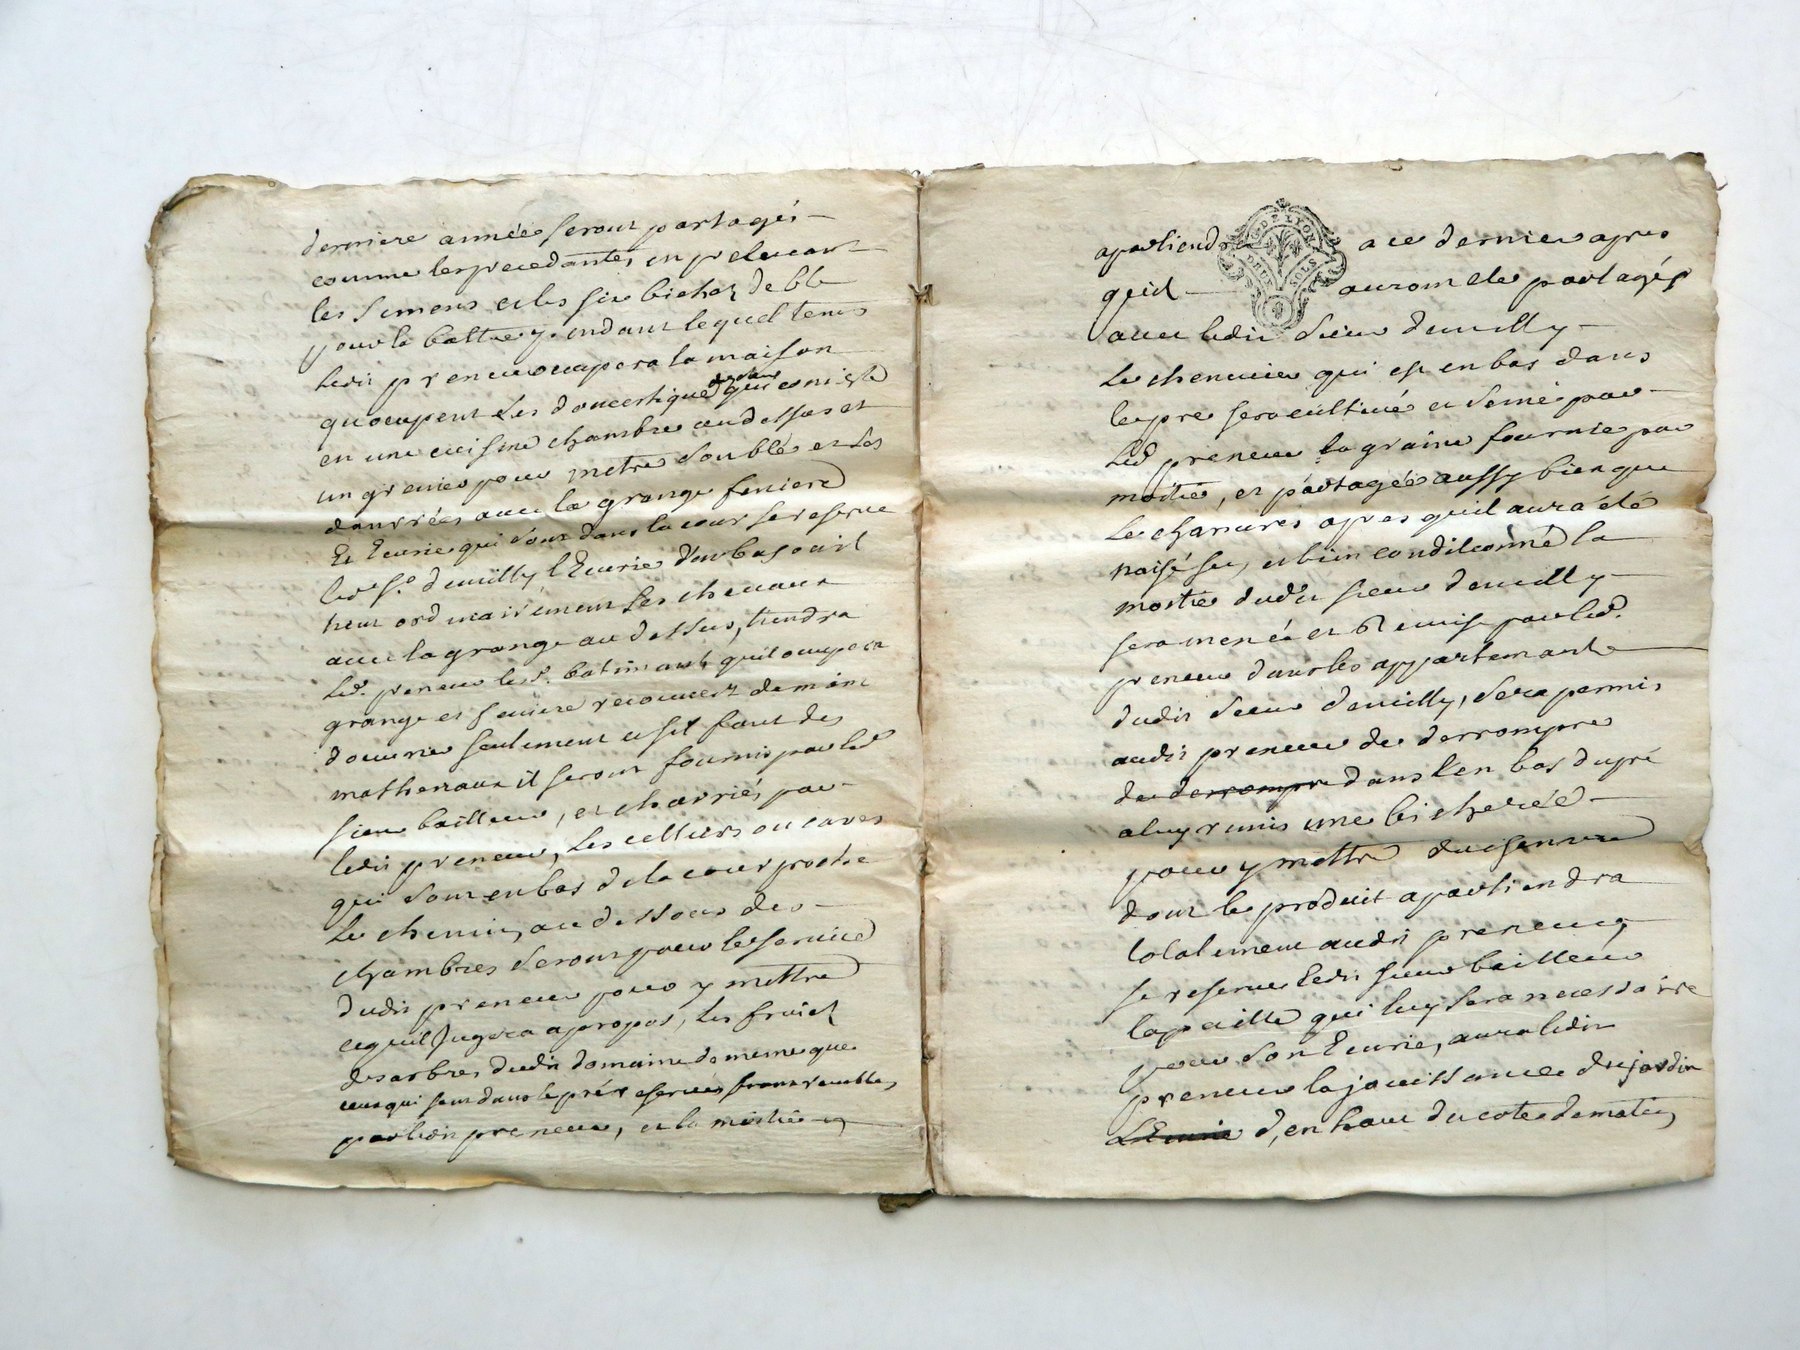 derniere année seront partagés
comme les precedantes en prelevant
les semens et les six bichez de blé
pour le battre, pendant lequel tems
ledit preneur ocupera la maison
qu'ocupent les domestiques dedans qui consiste
en une cuisine chambre au dessus et
un grenier pour metre son blé et les
danrrées avec la grange feniere
et Ecurie qui sont dans la cour se reserve
led. Sr. demilly l'Ecurie d'en bas ou il
tient ordinairement les chevaux
avec la grange au dessus, tiendra
led. preneur led. batimant qu'il ocupera
grange et feniere recouvert de main
d'ouvrie seulement et s'il faut des
matheriaux il seront fournis par led
sieur bailleur, et charriés par
ledit preneur, les celliers ou caves
qui sont en bas de la cour proche
le chemin, au dessous des
chambres seront pour le service
dudit preneur pour y mettre
ce quil Jugera apropos, les fruich
des arbres dudit domaine de meme que
ceux qui sont dans le pré reservés seront
par ledit preneur, et la moitié en
apartiendra a ce dernier apres
quil auront ete partagés
avec ledit Sieur demilly
le chenevier qui est en bas dans
le pre sera cultivé et semé par
led preneur la graine fournie par
moitié, et partagée aussy bien que
le chanvres apres quil aura été
naisé sec, et bien conditionné la
moitié dudit sieur demilly
sera menée et Remise par led.
preneur dans les appartemants
dudit Sieur demilly, sera permis
audit preneur de derrompre
de derrompre dans l'en bas du pré
a luy remis une bicherée
pour y mettre du chanvre
dont le produit apartiendra
totalement audit preneur,
se reserve ledit sieur bailleur
la paille qui luy sera necessaire
pour son Ecurie, aura ledit
preneur la jouissance du jardin
L'Ecurie d'en haut du coté de matin,
G. DE LYON
DEUX SOLS